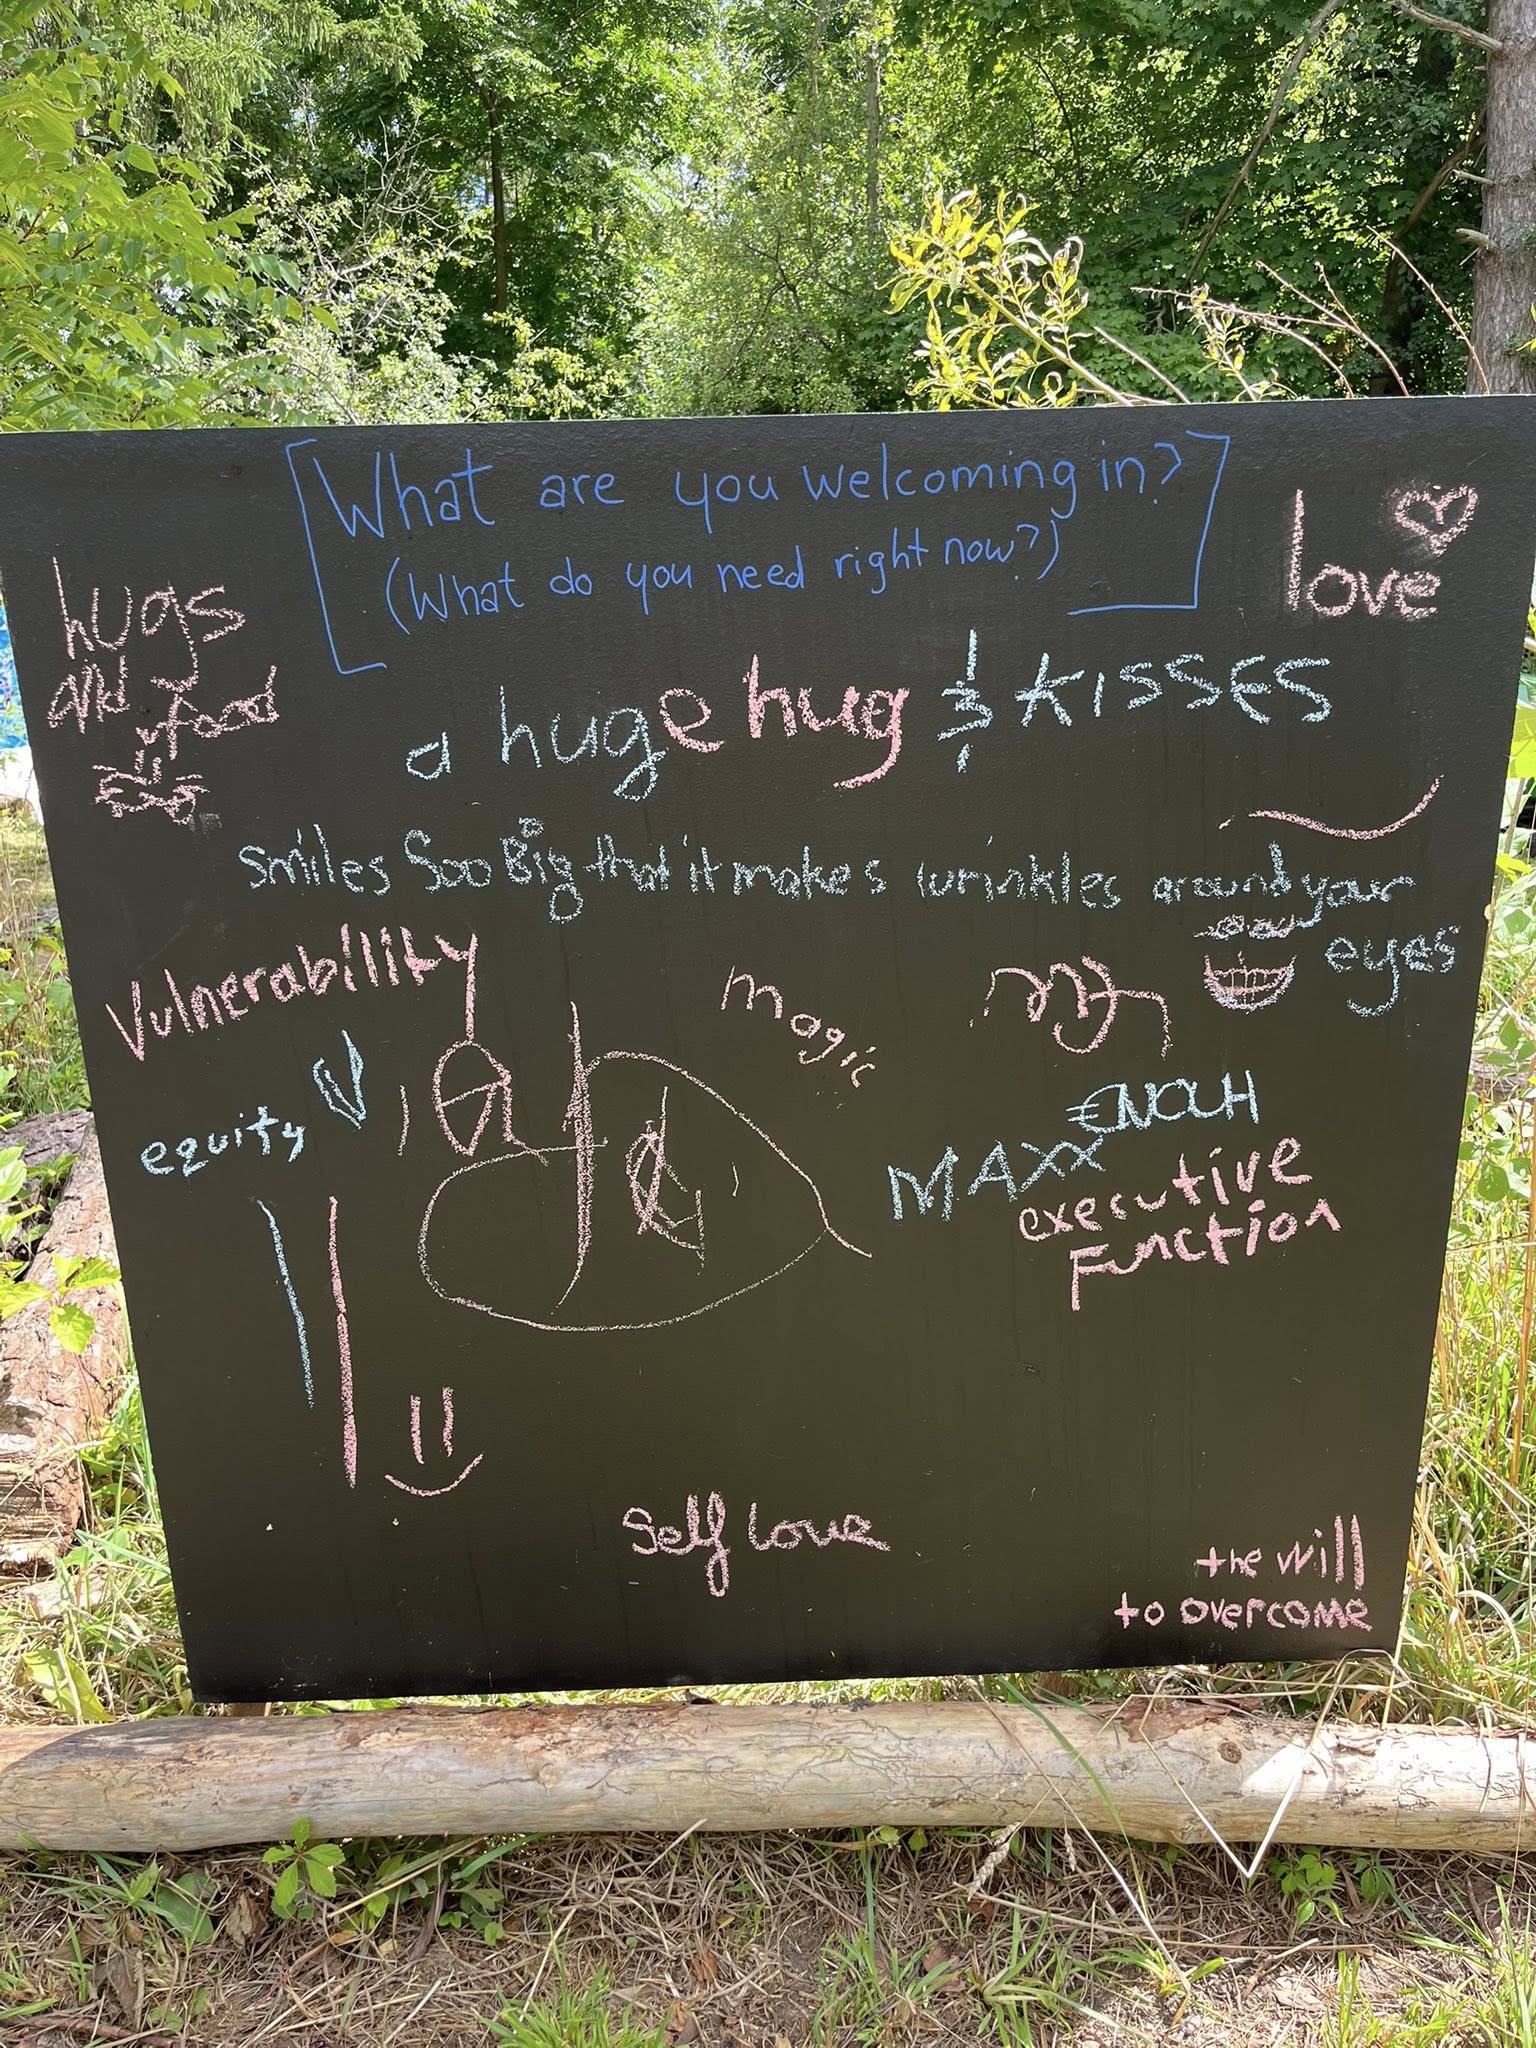 What are you welcoming in?
(What do you need right now?)
love
hugs
and food
a huge hug & KISSES
Smiles Soo Big that it makes wrinkles around your
eyes
Vulnerability
magic
equity
MAXX ENOUH
executive
Function
Self Love
the will
to overcome